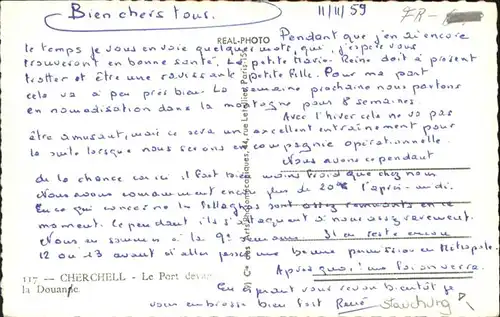 Bien chers tous.
11/11/59
REAL-PHOTO
Pendant que j'en ai encore
le temps je vous envoie quelques mots, qui, j'espère vous
trouveront en bonne santé. La petite Marie-Reine doit à présent
trotter et être une ravissante petite fille. Pour ma part
cela va à peu près bien. La semaine prochaine nous partons
en nomadisation dans la montagne pour 8 semaines.
Avec l'hiver cela ne va pas
être amusant, mais ce sera un excellent entraînement pour
la suite lorsque nous serons en compagnie opérationnelle.
Nous avons cependant
de la chance car ici il fait bien moins froid que chez nous
Nous avons couramment encore plus de 20° l'après-midi.
En ce qui concerne les Fellaghas sont assez remuants en ce
moment. Cependant ils s'attaquent à nous assez rarement.
Nous en sommes à la 9e semaine. Il en reste encore
12 ou 13 avant d'aller passer une bonne permission en Métropole.
Après quoi! une fois on verra.
117 - CHERCHELL - Le Port devant
la Douane.
En espérant vous revoir bientôt je
vous embrasse bien fort René